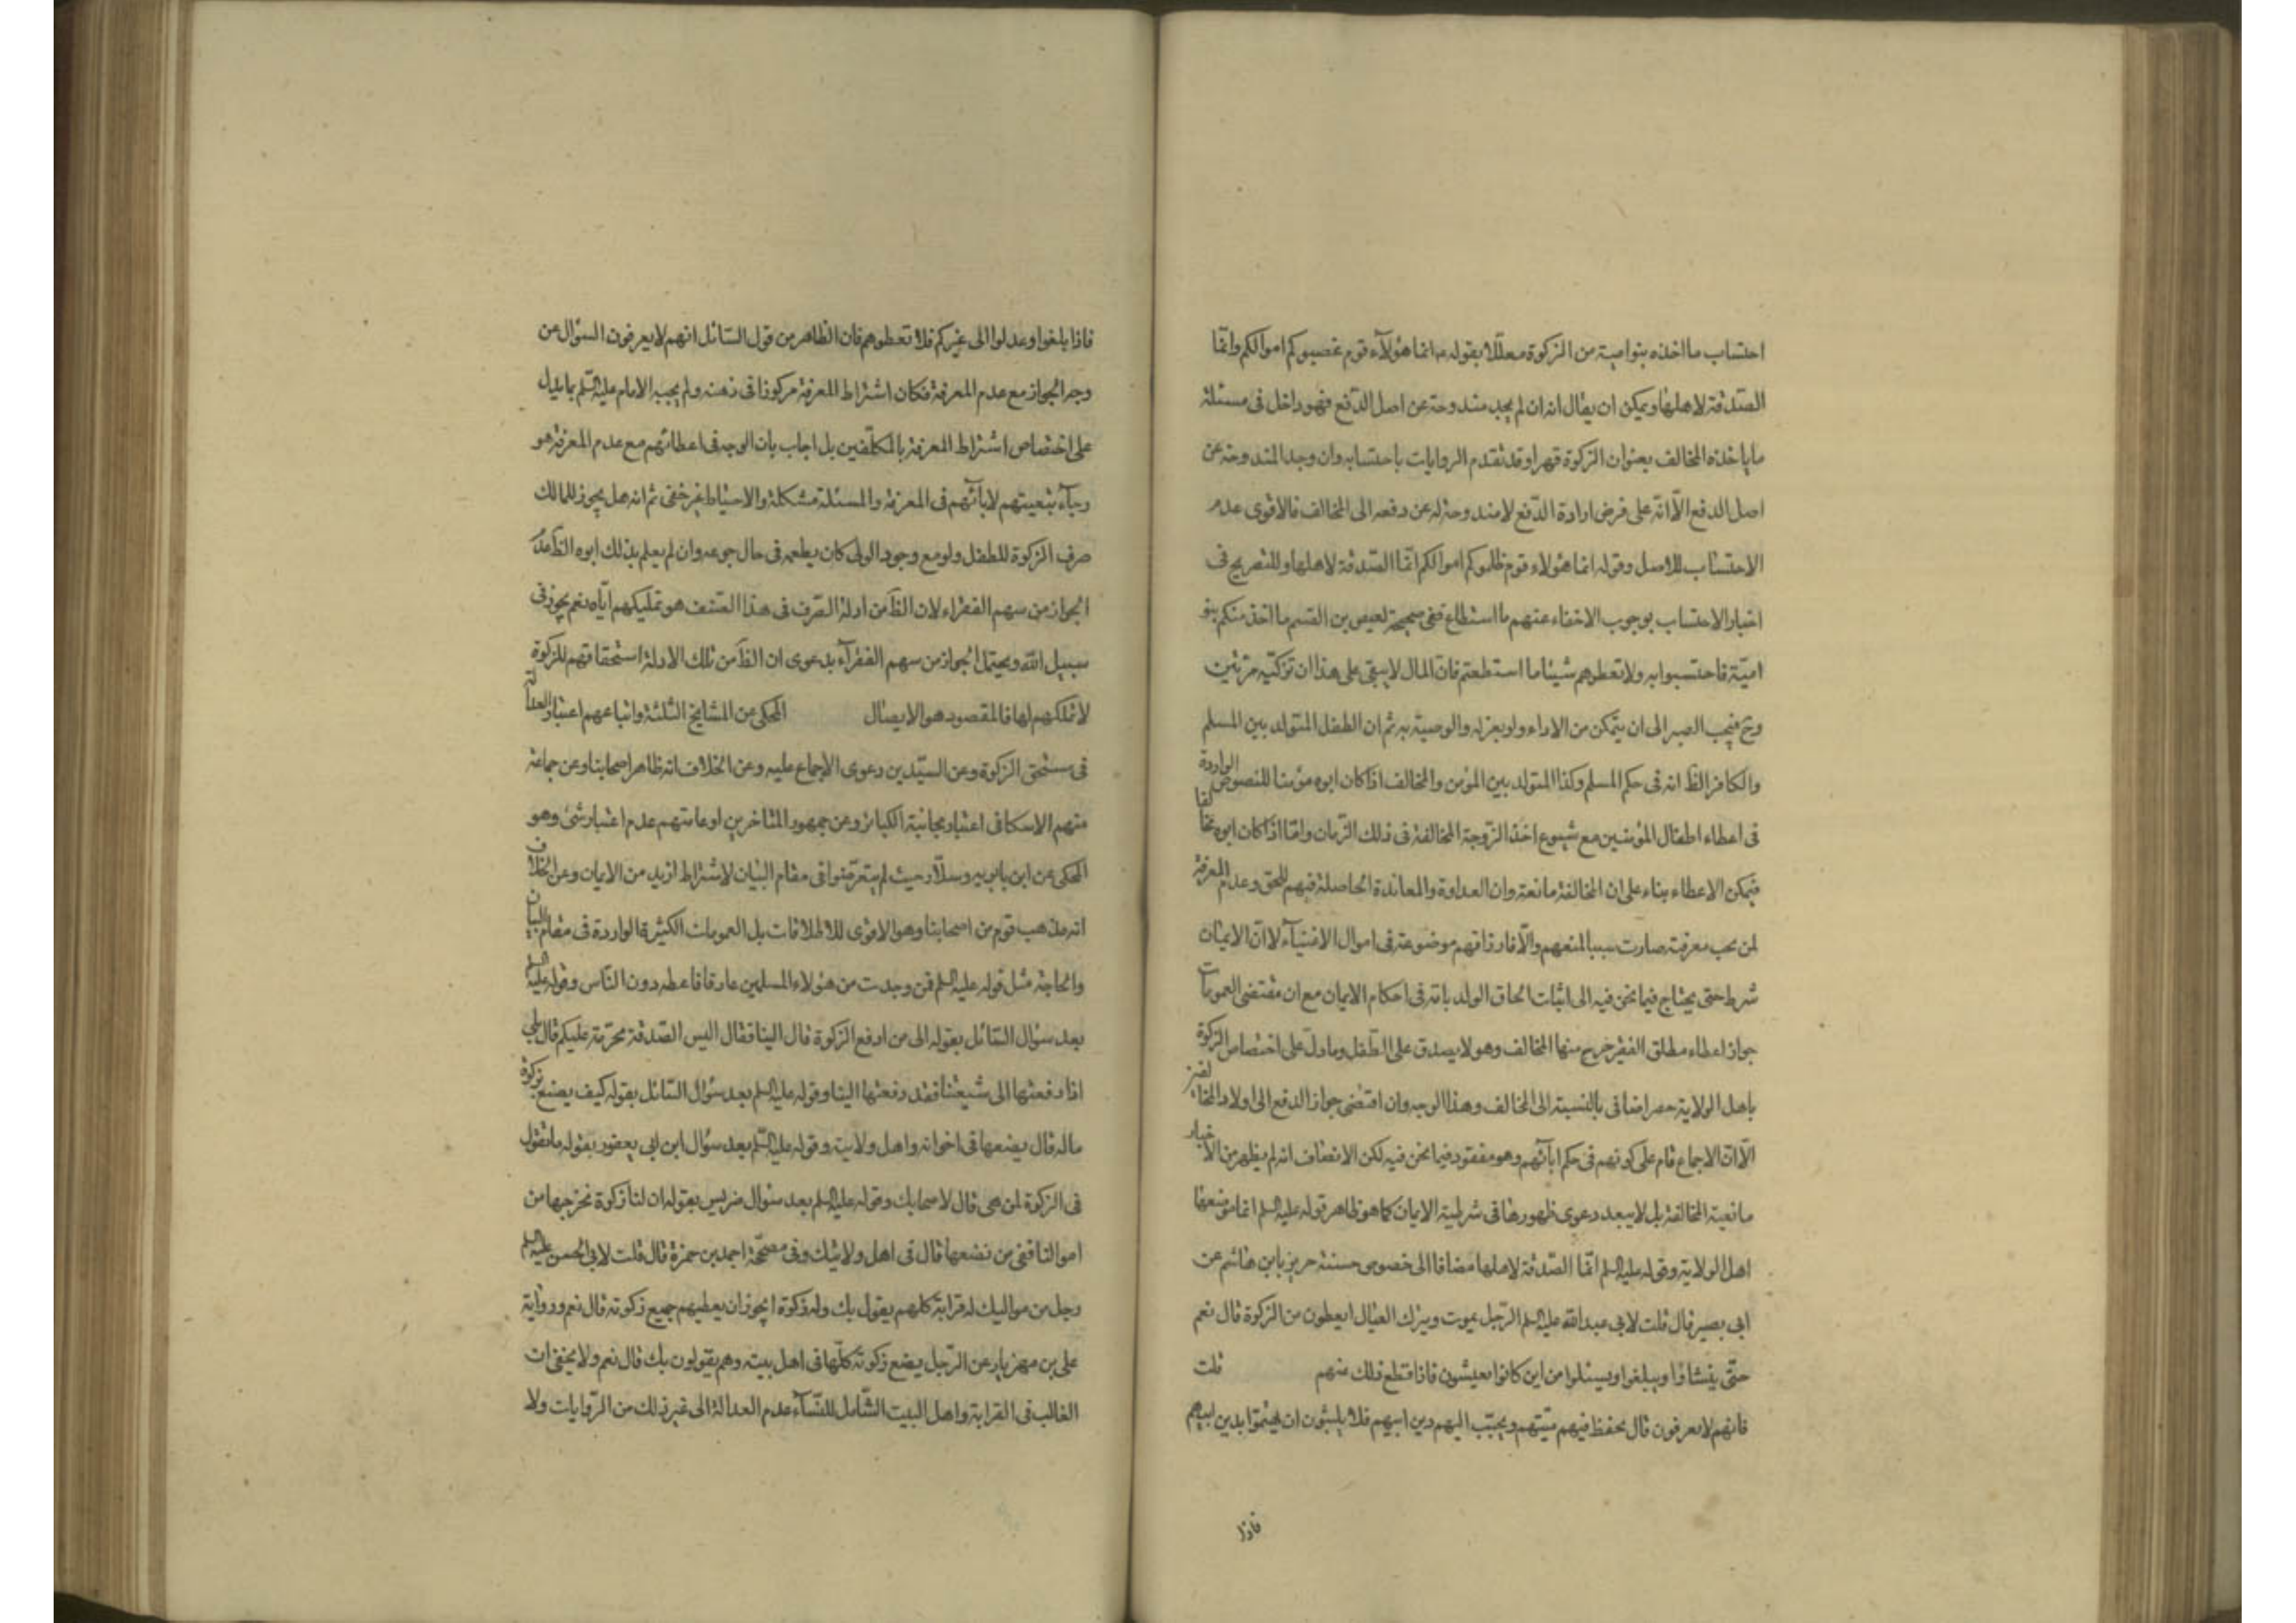 احتساب ما اخذه بنو امية من الزكوة معللا بقوله ع انما هؤلآء قوم غصبوكم اموالكم وانما
الصدقة لاهلها ويمكن ان يقال انه ان لم يجد مندوحة عن اصل الدفع فهو داخل فى مسئلة
ما ياخذه المخالف بعنوان الزكوة قهرا وقد تقدم الروايات باحتسابه وان وجد المندوحة عن
اصل الدفع الّا انّه على فرض ارادة الدّفع لا مندوحة له عن دفعه الى المخالف فالاقوى عدم
الاحتساب للاصل وقوله انما هؤلاء قوم ظلموكم اموالكم انّما الصّدقة لاهلها وللتصريح فى
اخبار الاحتساب بوجوب الاخفاء عنهم ما استطاع ففى صحيحة لعيص بن القسم ما اخذ منكم بنو
اميّة فاحتسبوا به ولا تعطوهم شيئا ما استطعتم فانّ المال لا يبقى على هذا ان تزكّيه مرّتين
وح فيجب الصبر الى ان يتمكن من الاداء ولو بعزله والوصية به ثم ان الطفل المتولد بين المسلم
والكافر الظ انه فى حكم المسلم وكذا المتولد بين المؤمن والمخالف اذا كان ابوه مؤمنا للنصوص الواردة
فى اعطاء اطفال المؤمنين مع شيوع اخذ الزّوجة المخالفة فى ذلك الزّمان وامّا اذا كان ابوه مخالفا
فيمكن الاعطاء بناء على ان المخالفة مانعة وان العداوة والمعاندة الحاصلة فيهم للحق وعدم المعرفة
لمن يجب معرفته صارت سببا لمنعهم والّا فارزاقهم موضوعة فى اموال الاغنيآء لا انّ الايمان
شرط حتى يحتاج فيما نحن فيه الى اثبات الحاق الولد بابه فى احكام الايمان مع ان مقتضى العمومات
جواز اعطاء مطلق الفقير خرج منها المخالف وهو لا يصدق على الطّفل وما دلّ على اختصاص الزكوة
باهل الولاية حصر اضافى بالنسبة الى المخالف وهذا الوجه وان اقتضى جواز الدفع الى اولاد المخالفين
الّا انّ الاجماع قام على كونهم فى حكم ابآئهم وهو مفقود فيما نحن فيه لكن الانصاف انه لم يظهر من الاخبار
مانعية المخالفة بل لا يبعد دعوى ظهورها فى شرطية الايمان كما هو ظاهر قوله عليه السلم انما موضعها
اهل الولاية وقوله عليه السلم انّما الصّدقة لاهلها مضافا الى خصوص حسنة حريز بابن هاشم عن
ابى بصير قال قلت لابى عبد الله عليه السلم الرّجل يموت ويترك العيال ايعطون من الزكوة قال نعم
حتّى ينشاؤا ويبلغوا ويسئلوا من اين كانوا يعيشون فاذا قطع ذلك عنهم قلت
فانهم لا يعرفون قال يحفظ فيهم ميّتهم ويحبّب اليهم دين ابيهم فلا يلبثون ان يهتمّوا بدين ابيهم
فاذا
فاذا بلغوا وعدلوا الى غيركم فلا تعطوهم فان الظاهر من قول السّائل انهم لا يعرفون السؤال عن
وجه الجواز مع عدم المعرفة فكان اشتراط المعرفة مركوزا فى ذهنه ولم يجبه الامام عليه السّلم بما يدل
على اختصاص اشتراط المعرفة بالمكلّفين بل اجاب بان الوجه فى اعطائهم مع عدم المعرفة هو
رجآء تبعيتهم لابآئهم فى المعرفة والمسئلة مشكلة والاحتياط غير خفى ثم انه هل يجوز للمالك
صرف الزكوة للطفل ولو مع وجود الولى كان يطعمه فى حال جوعه وان لم يعلم بذلك ابوه الظّ عدم
الجواز من سهم الفقراء لان الظّ من ادلة الصّرف فى هذا الصّنف هو تمليكهم ايّاه نعم يجوز فى
سبيل الله ويحتمل الجواز من سهم الفقرآء بدعوى ان الظّ من تلك الادلة استحقاقهم للزكوة
لا تملكهم لها فالمقصود هو الايصال المحكى عن المشايخ الثلثة واتباعهم اعتبار العدالة
فى مستحق الزكوة وعن السيّدين دعوى الاجماع عليه وعن الخلاف انه ظاهر اصحابنا وعن جماعة
منهم الاسكافى اعتبار مجانبة الكبائر وعن جمهور المتاخرين او عامتهم عدم اعتبار شئ وهو
المحكى عن ابن بابويه وسلّار حيث لم يتعرّضوا فى مقام البيان لاشتراط ازيد من الايمان وعن الخلاف
انه مذهب قوم من اصحابنا وهو الاقوى للاطلاقات بل العمومات الكثيرة الواردة فى مقام البيان
والحاجة مثل قوله عليه السلم فمن وجدت من هؤلاء المسلمين عارفا فاعطه دون النّاس وقوله عليه السلم
بعد سؤال السّائل بقوله الى من ادفع الزكوة قال الينا فقال اليس الصّدقة محرّمة عليكم قال بلى
اذا دفعتها الى شيعتنا فقد دفعتها الينا وقوله عليه السلم بعد سؤال السّائل بقوله كيف يصنع بزكوة
ماله قال يضعها فى اخوانه واهل ولايته وقوله عليه السّلم بعد سؤال ابن ابى يعفور بقوله ما تقول
فى الزكوة لمن هى قال لاصحابك وقوله عليه السلم بعد سئوال ضريس بقوله ان لنا زكوة نخرجها من
اموالنا ففى من نضعها قال فى اهل ولايتك وفى مصحّحة احمد بن حمزة قال قلت لابى الحسن عليه السلم
رجل من مواليك له قرابة كلهم يقول بك وله زكوة ايجوز ان يعطيهم جميع زكوته قال نعم ورواية
على بن مهزيار عن الرّجل يضع زكوته كلّها فى اهل بيته وهم يقولون بك قال نعم ولا يخفى ان
الغالب فى القرابة واهل البيت الشّامل للنّسآء عدم العدالة الى غير ذلك من الرّوايات ولا